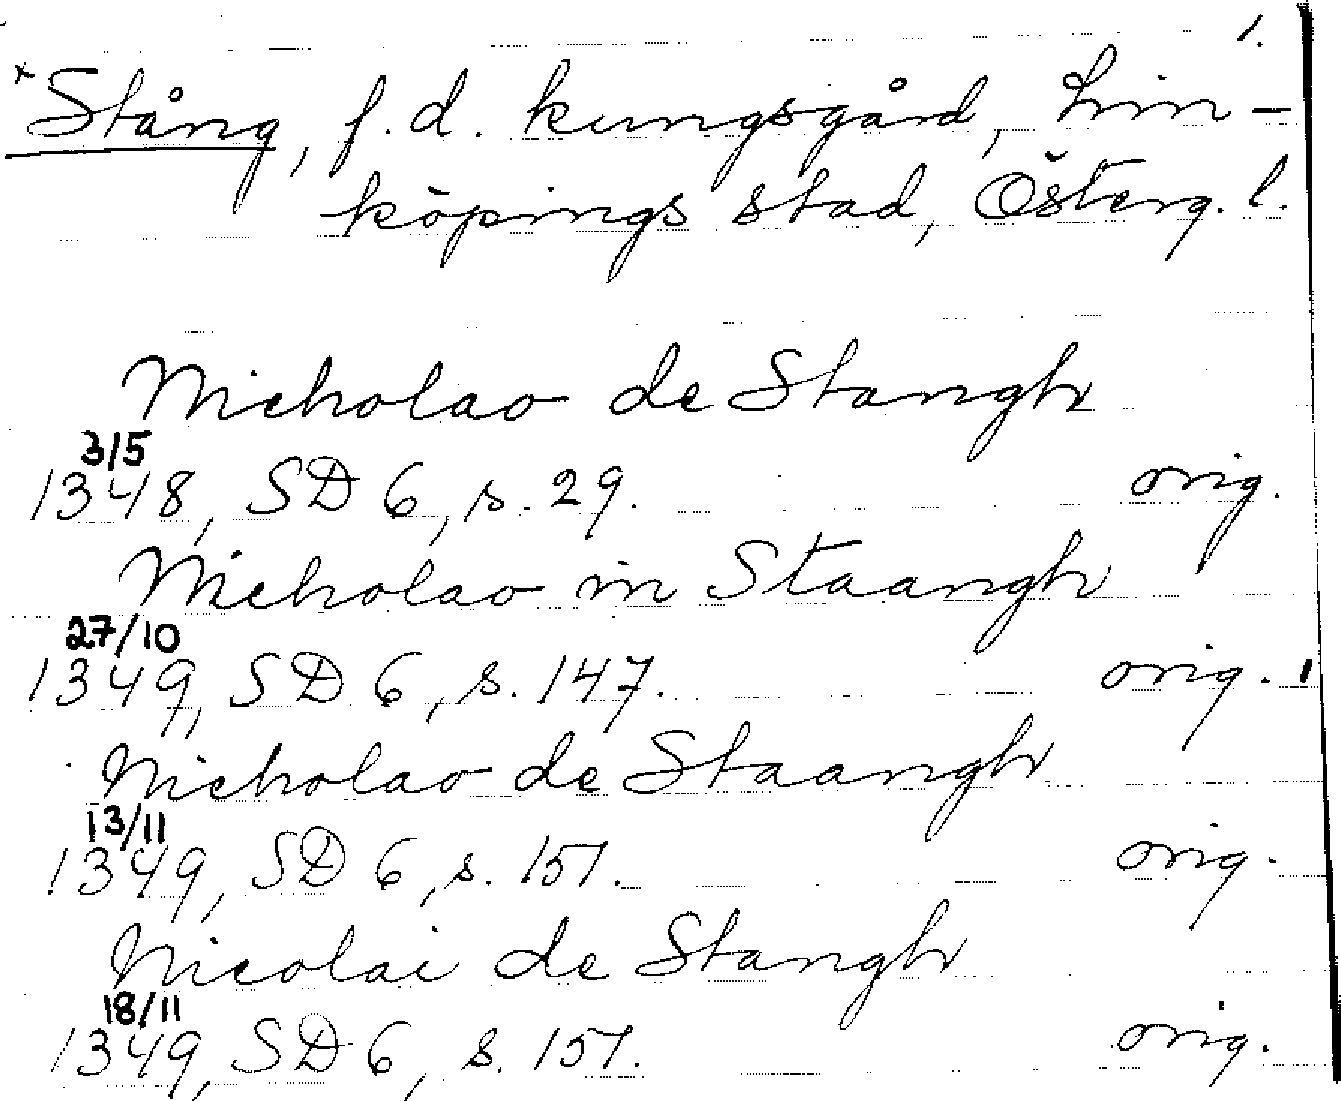 1.
*Stång, f.d. kungsgård, Lin-
köpings stad, Österg. l.
Nicholao de Stangh
3/5
1348, SD 6, s. 29. orig.
Nicholao in Staangh
27/10
1349, SD 6, s. 147. orig.
Nicholao de Staangh
13/11
1349, SD 6, s. 151. orig.
Nicolai de Stangh
18/11
1349, SD 6, s. 151. orig.